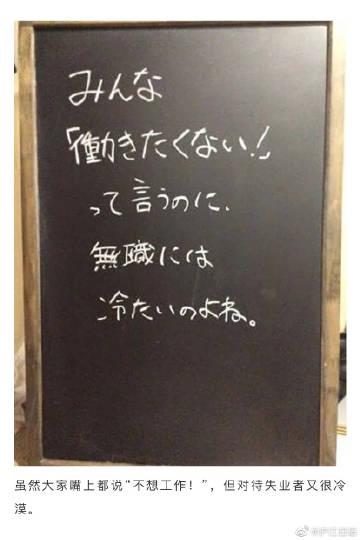 みんな
「働きたくない!」
って言うのに、
無職には
冷たいのよね。
虽然大家嘴上都说“不想工作!”，但对待失业者又很冷
漠。
@沪江日语